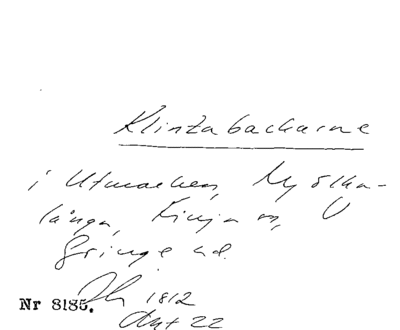 Klintabackarne
i Utmarken, Mjölka-
långa, Finja sn,
Gringe hd.
Nr 8185. 1812
Akt 22